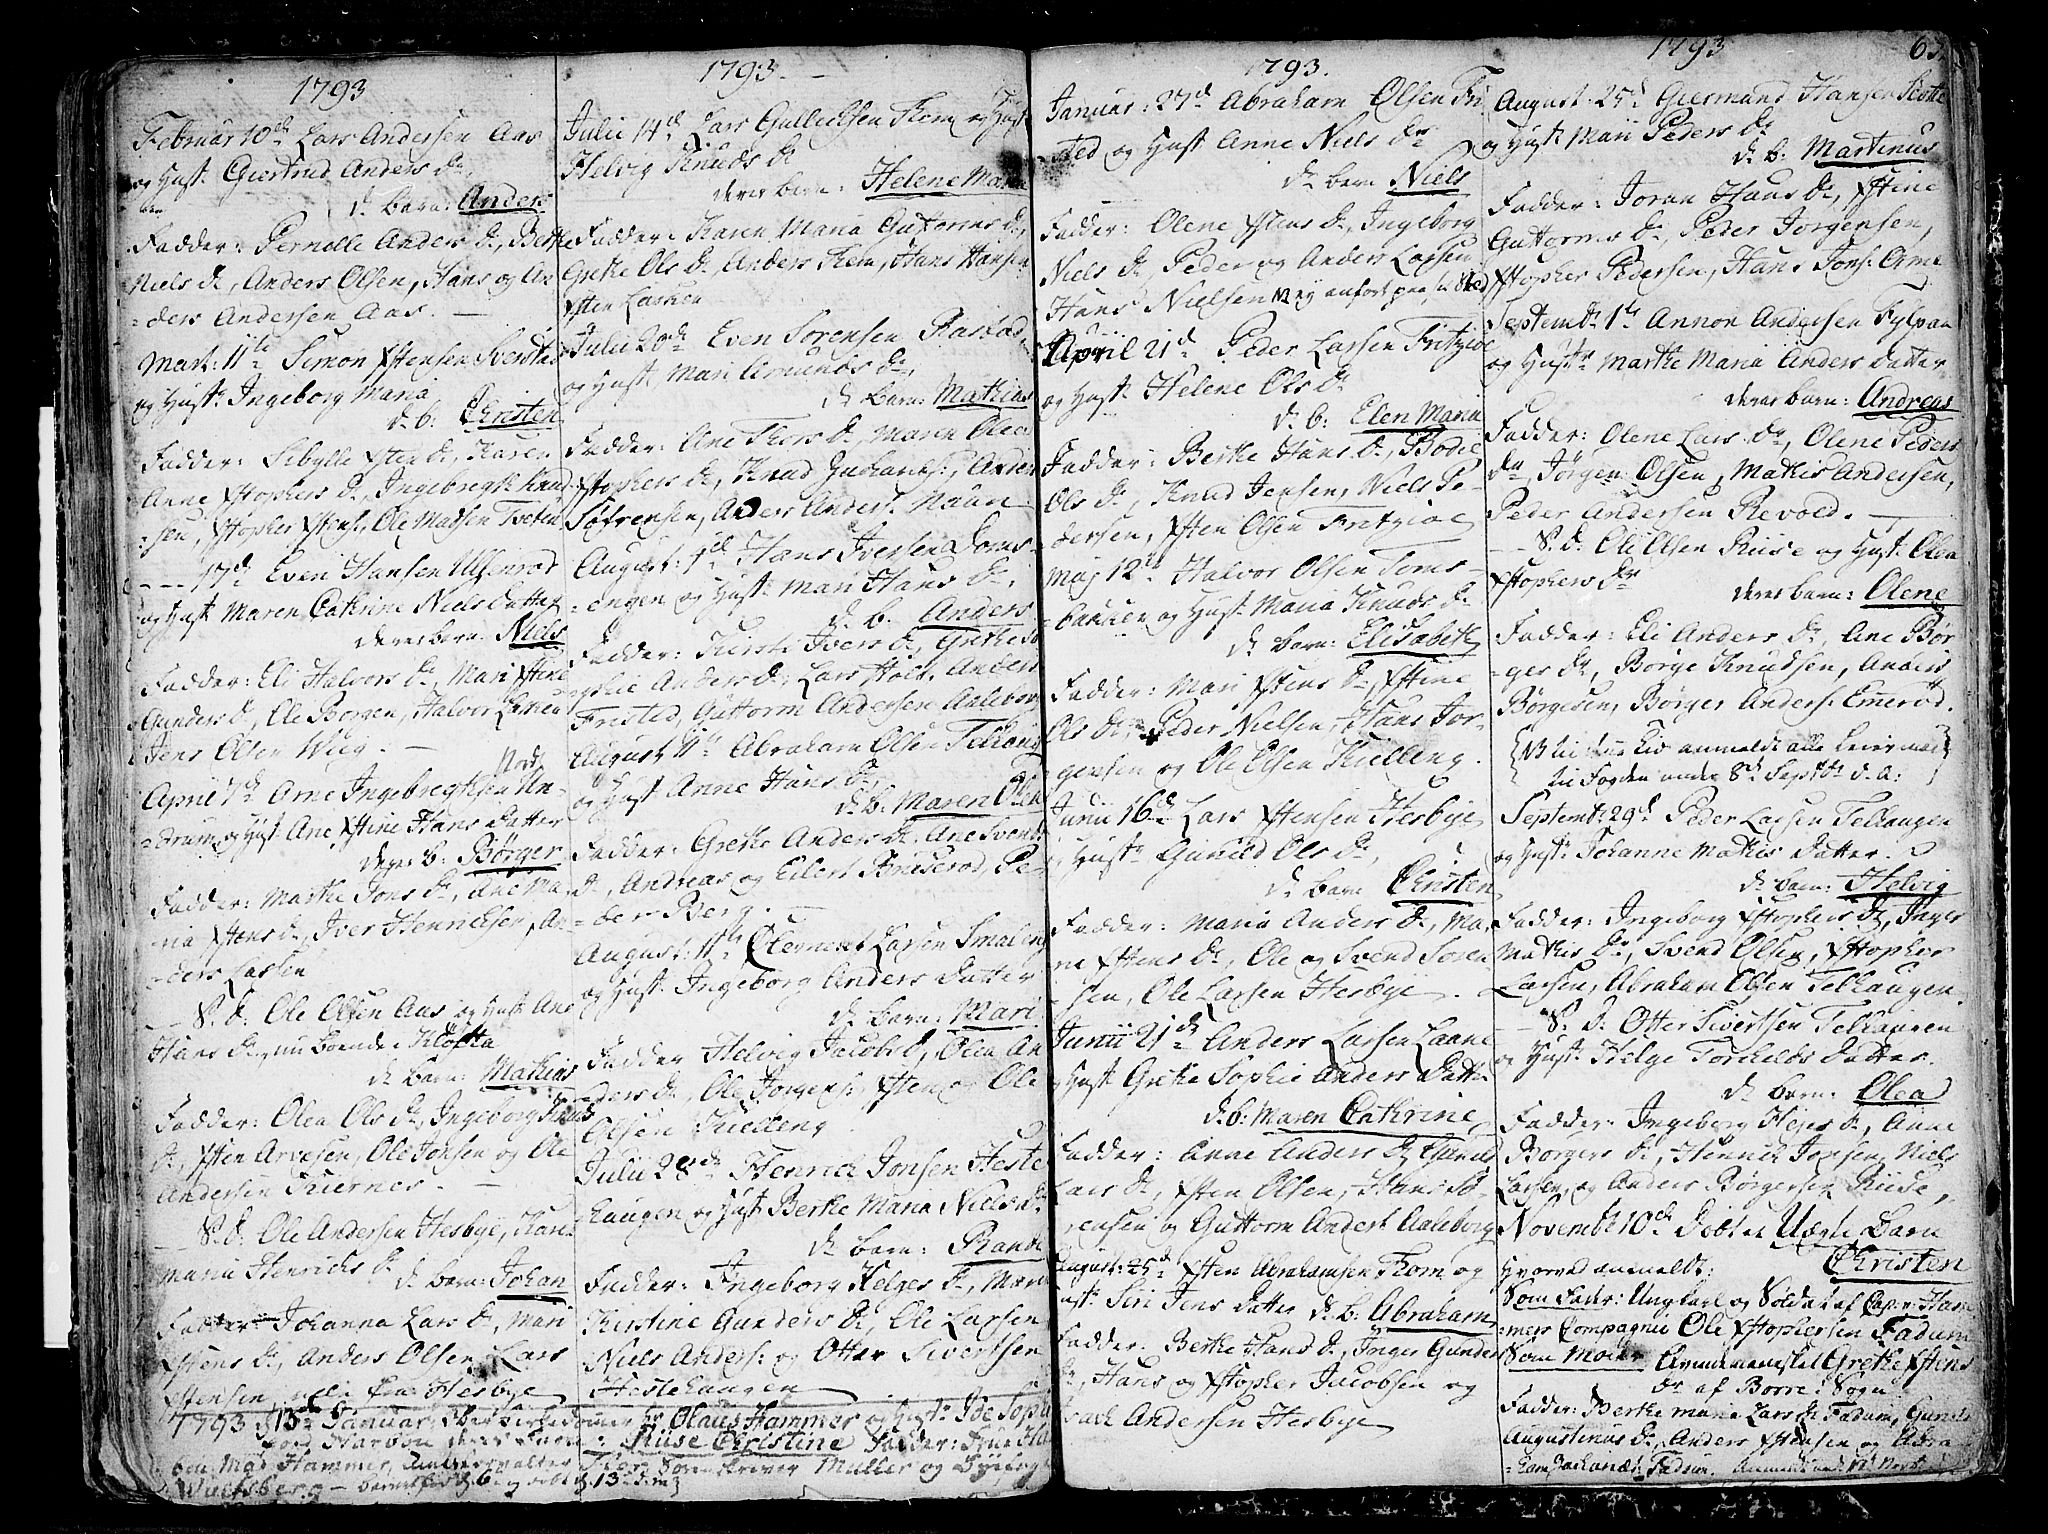 1793
Februar 10de Lars Andersen Aas
og Hust: Giertrud Anders Dr
Ds barn: Anders
Fadder: Pernelle Anders Dr, Berthe
Niels Dr, Anders Olsen, Hans og An
-ders Andersen Aas.
Mart: 11te Simon Xstensen Sverstad
og Hust: Ingeborg Maria
Ds b: Christen
Fadder: Sibylle Xsten Dr, Karen
Anne Xstophers Dr, Ingebregth Knud
-sen, Xstopher Xstens:, Ole Madsen Tveten
--- 17de Even Hansen Ulfenrod
og Hust Maren Cathrine Niels datter
deres barn: Niels
Fadder: Eli Halvors Dr, Mari Xstine
Gunders Dr, Ole Borgen, Halvor Larsen
Jens Olsen Wieg.
April 7de Arne Ingebregthsen Un-
-drum og Hust: Ane Xstine Hans datter
deres b: Børger
Fadder: Marthe Jons Dr, Ane Ma-
ria Xstens Dr, Iver Henrichsen, An-
-ders Larsen
S. d: Ole Olsen Aas og Hust: Ane
Hans Dr, nu boende i Klosta
Ds barn: Mathias
Fadder: Olea Ols Dr, Ingeborg Knuds
Dr, Xsten Arvesen, Ole Jonsen og Ole
Andersen Kiernes.
S. d: Ole Andersen Hesbye, Karen
Maria Henrichs Dr
Ds barn: Johan
Fadder: Johanna Lars Dr, Mari
Xstens Dr, Anders Olsen, Lars
Xstensen, alle fra Hesbye
1793 13de Januar, Olaus Hammer og Hust: Ide Sophie
Riise Christine Fadder: Frue
Mad: Hammer, Sorenskriver Müller og
født 6 og døbt 13
1793.
Julii 14de Lars Gullichsen Rom og Hust
Helvig Knuds Dr
deres barn: Helene Maria
Fadder: Karen Maria Guttorms Dr,
Grethe Ols Dr, Anders Rom, Hans Hansen
Xsten Larsen
Julii 20de Even Sørensen Rastad,
og Hust Mari Amunds Dr,
Ds barn: Mathias
Fadder: Ane Thors Dr, Maren Olea
Xstophers Dr, Knud Zachariæs:, Anders
Søfrensen, Anders Anders: Naun
August: 1de Hans Iversen Joms-
-engen og Hust: Mari Hans Dr,
Ds b. Anders
Fadder: Kirsti Ivers Dr, Grethe So
-phie Anders Dr, Lars Hols, Anders
Fristed, Guttorm Andersen Aaleborg
August 11te Abraham Olsen Telhoug
og Hust Anne Hans Dr,
Ds b: Maren Olea
Fadder: Grethe Anders Dr, Ane Svends
Dr, Andreas og Eilert Bruserod, Pe-
-der Berg.
August: 11te Clement Larsen Smaleng
og Hust: Ingeborg Anders datter
Ds barn: Mari
Fadder Helvig Jacobs Dr, Olea An
-ders Dr, Ole Jorgens:, Xsten og Ole
Olsen Kielleng
Julii 28de Henrich Jonsen Heste
haugen og Hust Berthe Maria Niels Dr
Ds barn: Rande
Fadder: Ingeborg Helges Dr, Maren
Kirstine Gunders Dr, Ole Larsen
Niels Anders: og Otter Sivertsen
Hestehaugen
1793.
Januar: 27de Abraham Olsen Fri
-sted og Hust Anne Niels Dr
Ds barn Niels
Fadder: Olene Xstens Dr, Ingeborg
Niels Dr, Peder og Anders Larsen
Hans Nielsen NB ej anført paa sit Sted
April 21de Peder Larsen Fritzioe
og Hust: Helene Ols Dr
Ds b: Elen Maria
Fadder: Berthe Hans Dr, Bodil
Ols Dr, Knud Jensen, Niels Pe-
-dersen, Xsten Olsen Fritzioe
Maj 12te Halvor Olsen Toms-
-bakken og Hust: Maria Knuds Dr
Ds barn: Elisabeth
Fadder: Mari Xstens Dr, Xstine
Ols Dr, Peder Nielsen, Hans Jor-
gensen og Ole Olsen Kielleng.
Junii 16de Lars Xstensen Hesbye
og Hust: Gunild Ols Dr,
Ds barn Christen
Fadder: Maria Anders Dr, Ma-
ri Xstens Dr, Ole og Svend Soren
-sen, Ole Larsen Hesbye.
Junii 21de Anders Larsen Laane
og Hust Grethe Sophie Anders Datter
Ds b: Maren Cathrine
Fadder: Anne Anders Dr, Gunild
Lars Dr, Xsten Olsen, Hans So-
-rensen og Guttorm Anders: Aaleborg
August: 25de Xsten Abrahamsen Thom og
Hust: Siri Jens Datter Ds b: Abraham
Fadder: Berthe Hans Dr, Inger Gunders
Dr, Hans og Xstopher Jacobsen og
Isach Andersen Hesbye
1793
August: 25de Giermund Hansen Slotte
og Hust: Mari Peders Dr
Ds b: Martinus
Fadder: Joran Hans Dr, Xstine
Guttorms Dr, Peder Jorgensen,
Xstopher Pedersen, Hans Jons: Orne
Septembr 1te Annon Andersen Fylpaa
og Hustr Marthe Maria Anders datter
deres barn: Andreas
Fadder: Olene Lars Dr, Olene Peders
Dr, Jørgen Olsen, Mathis Andersen,
Peder Andersen Revold.
S. D: Oli Olsen Riise og Hust: Olea
Xstophers Dr
deres barn: Olene
Fadder: Eli Anders Dr, Ane Bør
-gers Dr, Børge Knudsen, Anders
Børgesen, Børger Anders: Emerød.
NB til den Tid anmeldt alle Leiermaal
til Fogden under 8de Septbr d. a:
Septembr 29de Peder Larsen Telhaugen
og Hust: Johanne Mathis datter.
Ds barn: Helvig
Fadder: Ingeborg Xstophers Dr, Inger
Mathis Dr, Svend Olsen, Xstopher
Larsen, Abraham Olsen Telhaugen.
S. D: Otter Sivertsen Telhaugen
og Hust: Helge Torchelds Datter.
Ds barn: Olea
Fadder: Ingeborg Hejes Dr, Anne
Børgers Dr, Henrich Jonsen, Niels
Larsen og Anders Børgersen Riise,
Novembr 10de Døbt et Uægte Barn
hvorved anmeldt: Christen
Som Fader: Ungkarl og Soldat af Capt: Ham
-mers Compagnie Ole Xstophersen Fadum
Som Moder Qvindemennisket Grethe Xstens
Dr af Borre Sogn
Fadder: Berthe Maria Lars Dr Fadum, Gunild
Augustinus Dr, Anders Xstensen og Abra
-ham Zachariæs: Fadum. Anmeldt